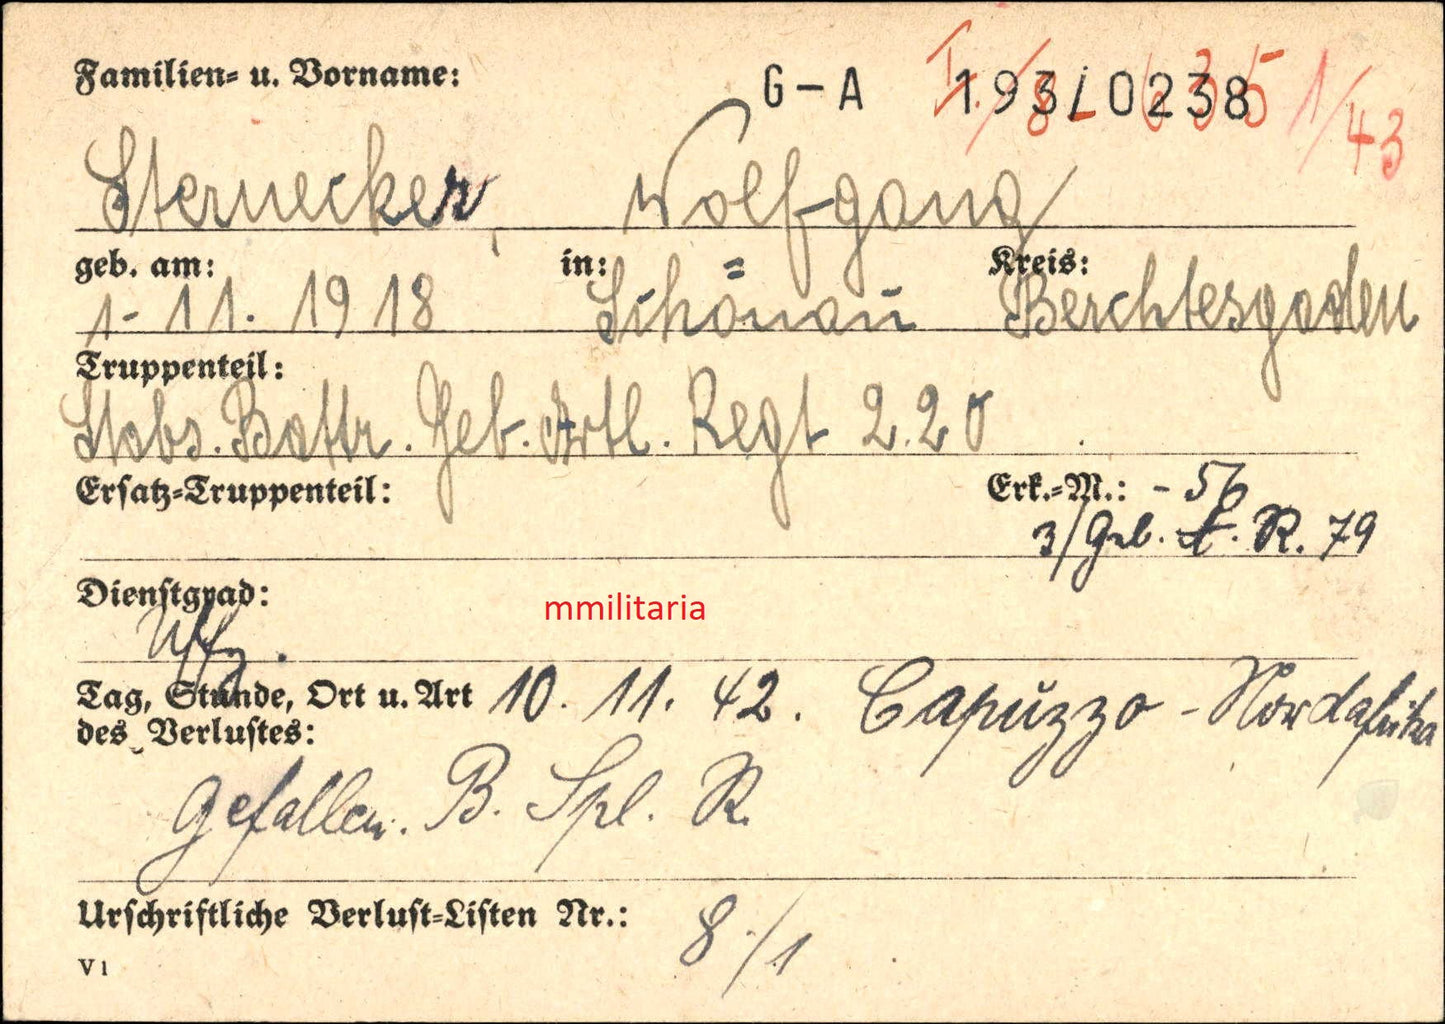 Familien- u. Vorname:
G-A 193/0238
1/43
Sternecker, Wolfgang
geb. am: in: Kreis:
1-11. 1918 Schönau Berchtesgaden
Truppenteil:
Stabs. Battr. Geb. Artl. Regt 220
Ersatz-Truppenteil: Erk.-M.: - 56
3/Geb. A. R. 79
Dienstgrad:
Uffz.
mmilitaria
Tag, Stunde, Ort u. Art 10. 11. 42. Capuzzo - Nordafrika
des Verlustes:
Gefallen. B. Spl. R.
Urschriftliche Verlust-Listen Nr.: 8./1
V 1